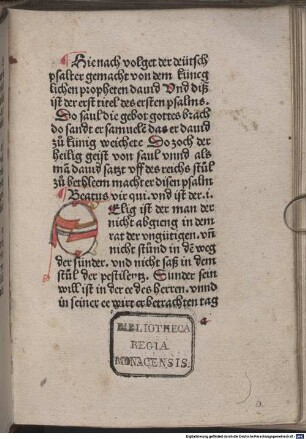 Hie nach volget der deütsch
psalter gemacht von dem küneg
lichen propheten dauid Vnd diß
ist der erst titel des ersten psalms.
Do saul die gebot gottes brach
do sandt er samuele das er dauid
zů künig weichete Do zoch der
heilig geist von saul vnnd als
mā dauid satzt vff des reichs stůl
zů bethleem macht er disen psalm
Beatus vir qui. vnd ist der .i.
Elig ist der man der
nicht abgieng in dem
rat der vngütigen. vn̄
nicht stůnd in dē weg
der sunder. vnd nicht saß in dem
stůl der pestilentz. Sunder sein
will ist in der ee des herren. vnnd
in seiner ee wirt er betrachten tag
a
BIBLIOTHECA
REGIA
MONACENSIS.